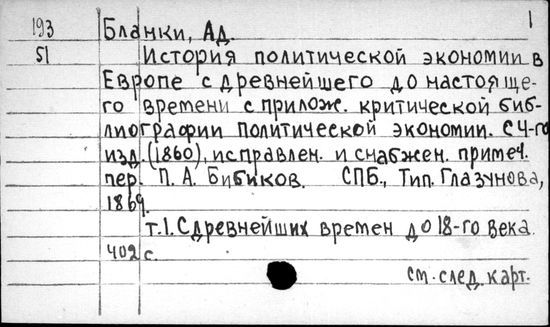 193 Бланки, Ад. 1
51 История политической экономии в
Европе с древнейшего до настояще-
го времени с прилож. критической биб-
лиографии политической экономии. С 4-го
изд. (1860), исправлен. и снабжен. примеч.
пер. П. А. Бибиков. СПб., Тип. Глазунова,
1869.
т.1. С древнейших времен до 18-го века.
402 с.
см. след. карт.